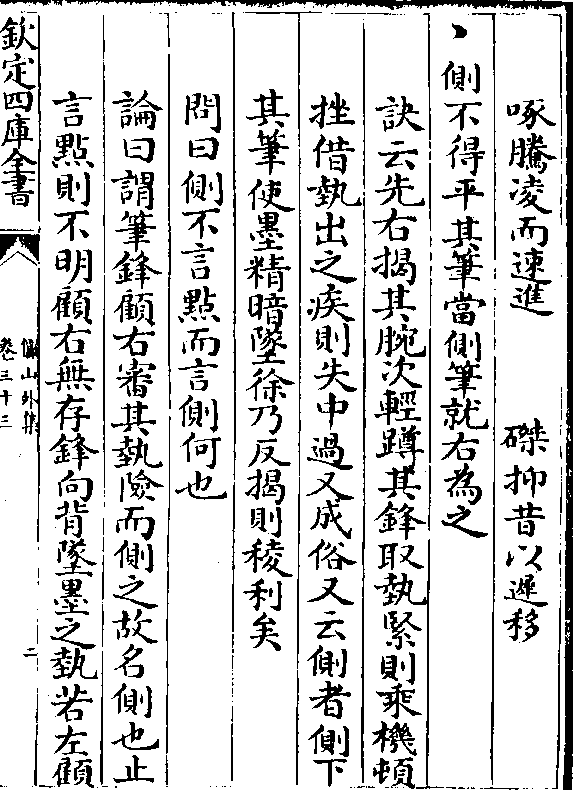 啄騰凌而速進　磔抑昔以遲移
丶側不得平其筆當側筆就右為之
訣云先右揭其腕次輕蹲其鋒取埶緊則乘機頓
挫借埶出之疾則失中過又成俗又云側者側下
其筆使墨精暗墜徐乃反揭則稜利矣
問曰側不言點而言側何也
論曰謂筆鋒顧右審其埶險而側之故名側也止
言點則不明顧右無存鋒向背墜墨之埶若左顧
欽定四庫全書
儼山外集
卷三十三
二